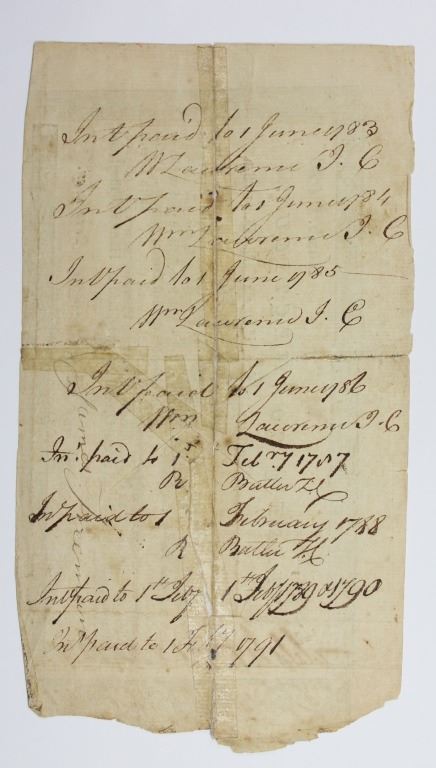 Int paid to 1 June 1783
W Lawrence J. C
Int paid to 1 June 1784
Wm Lawrence J. C
Int paid to 1 June 1785
Wm Lawrence J. C
Int paid to 1 June 1786
Wm Lawrence J. C
In. paid to 1 Febry 1787
R Butler
Int paid to 1 February 1788
R Butler
Int paid to 1st Feby 1790
Int paid to 1 Feby 1791